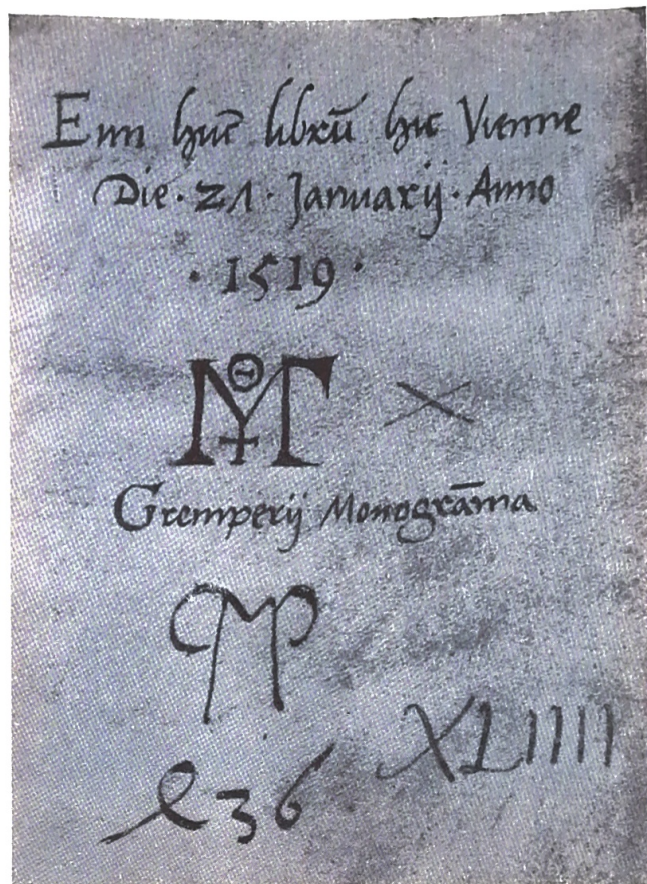 Emi hūc librū hic Vienne
Die · 21 · Januarij · Anno
· 1519 ·
Gremperij Monogrāma
XLIIII
e36